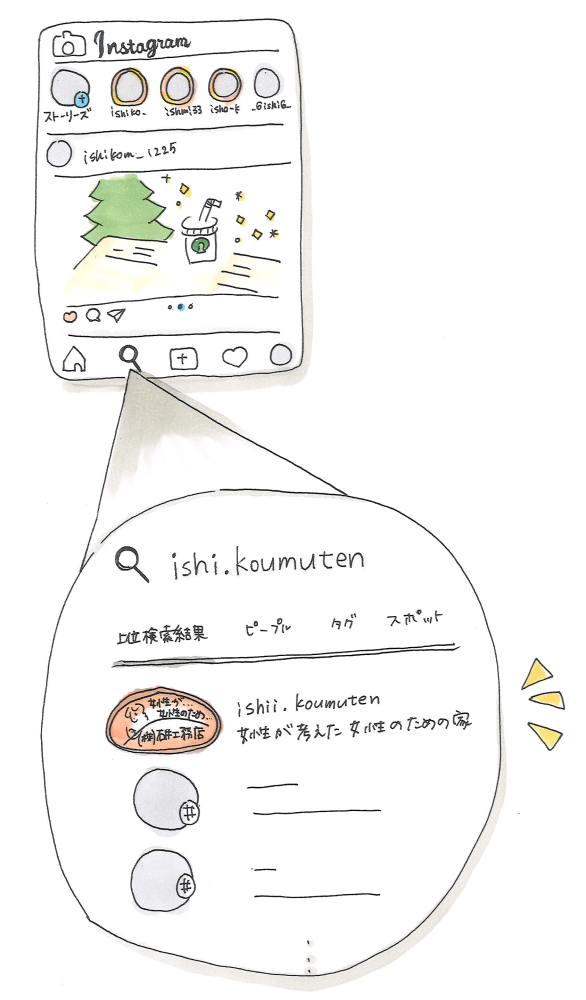 Instagram
ストーリーズ ishiko_ ishmi33 isho-k _GishiG_
ishikom_1225
ishi.koumuten
上位検索結果 ピープル タグ スポット
女性が…
女性のため…
(株)石井工務店
ishii.koumuten
女性が考えた女性のための家
#
#